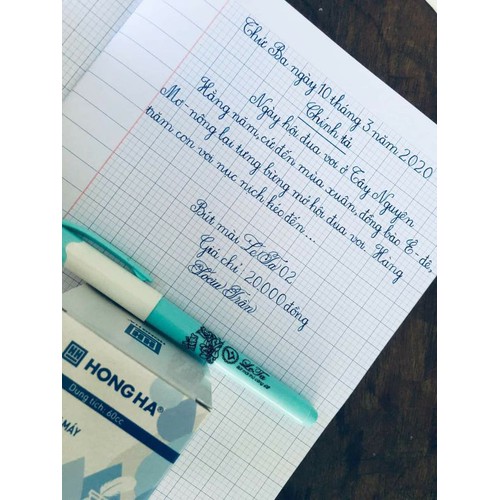 Thứ Ba ngày 10 tháng 3 năm 2020
Chính tả
Ngày hội đua voi ở Tây Nguyên
Hằng năm, cứ đến mùa xuân, đồng bào Ê-đê,
Mơ-nông lại tưng bừng mở hội đua voi. Hàng
trăm con voi nục nịch kéo đến...
Bút mài LeTa 02
Giá chỉ: 20.000 đồng
HH
HONG HA®
Dung tích: 60cc
MÁY
LeTa